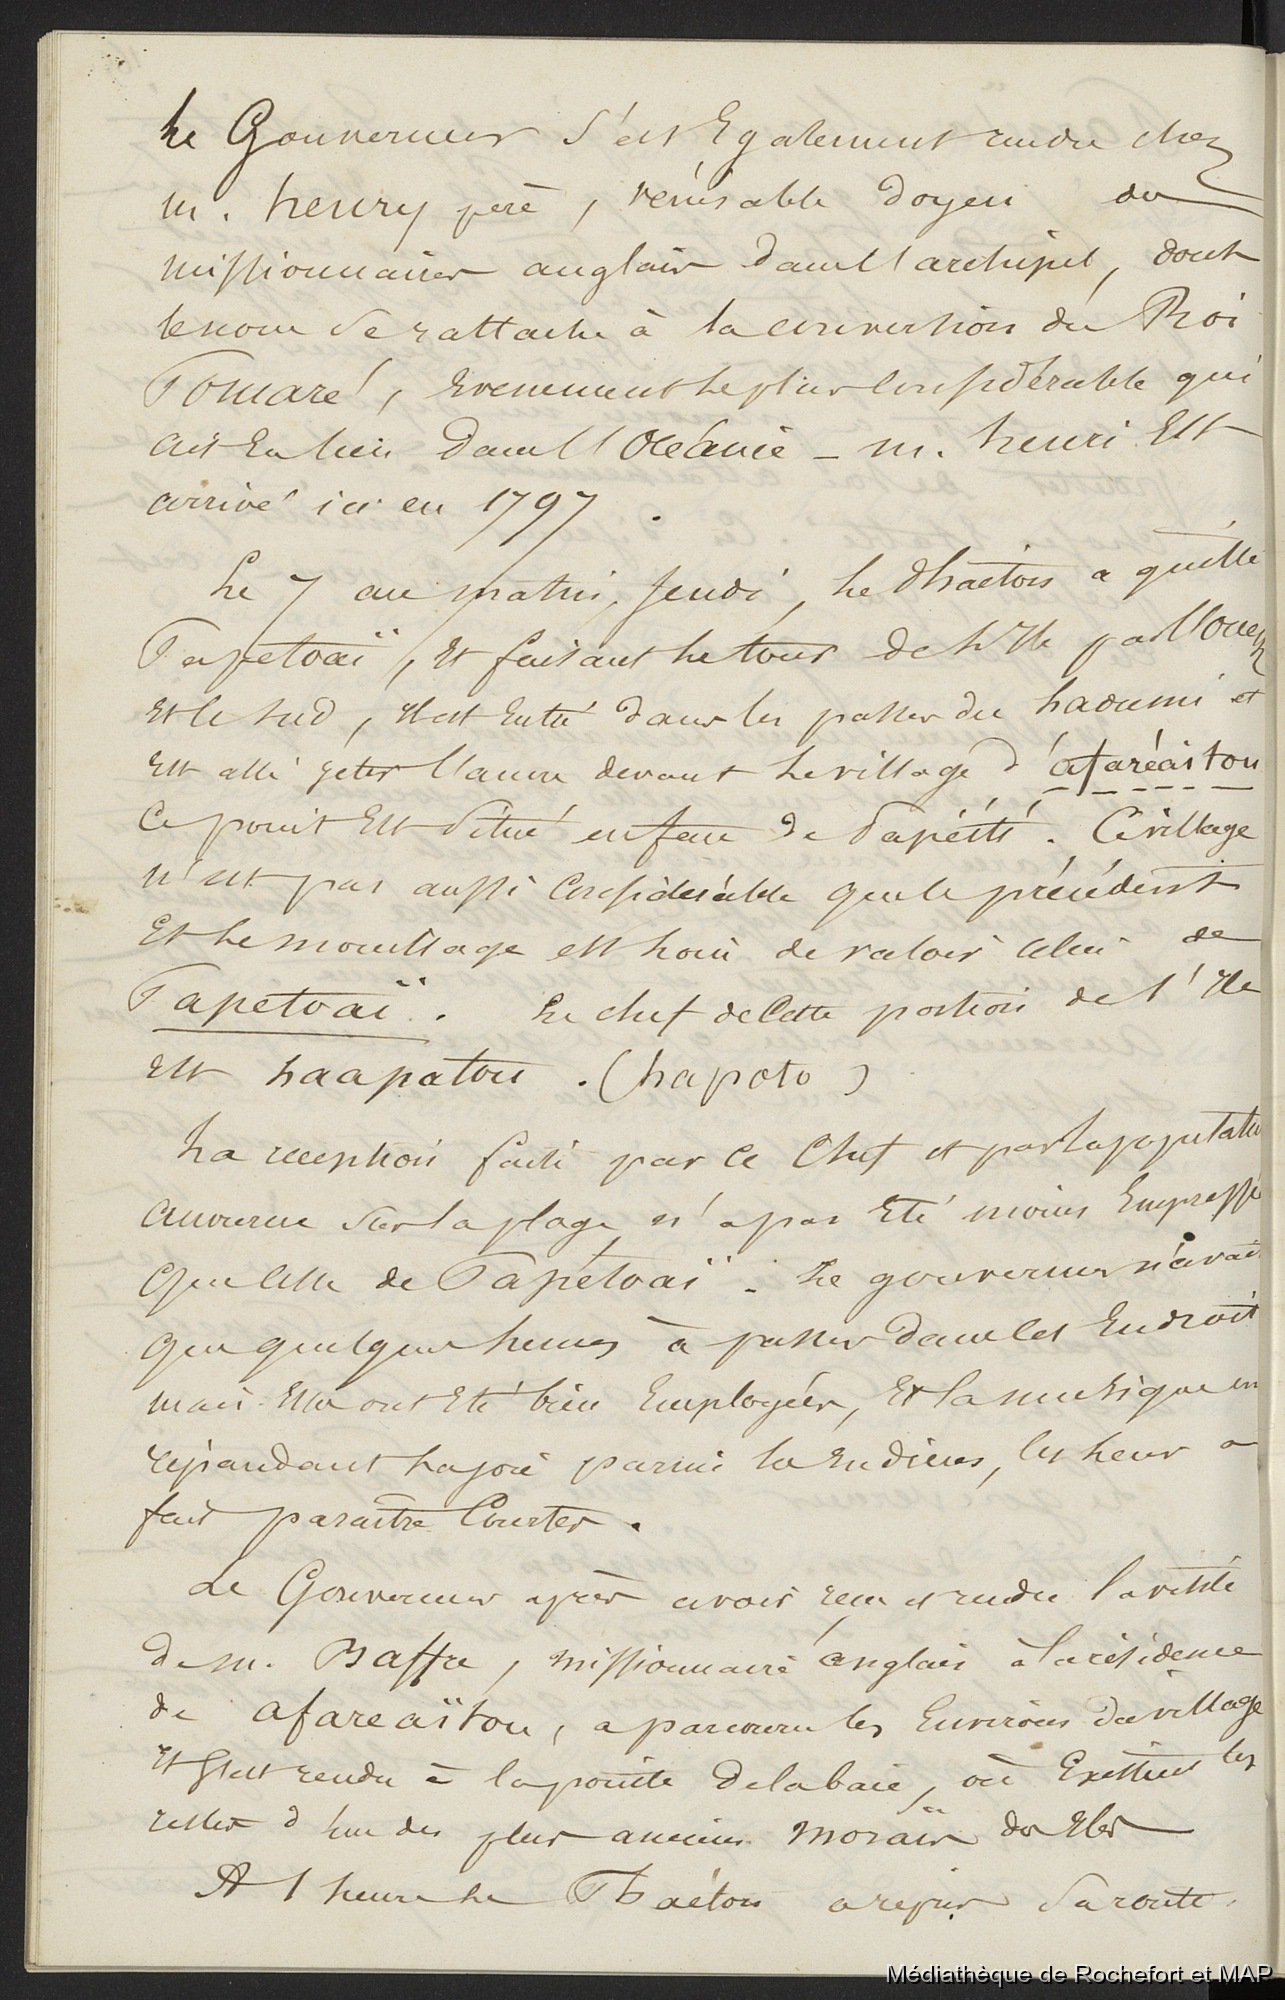 Le Gouverneur s'est Egalement rendu chez
M. henry père, vénérable Doyen des
missionnaires anglais dans l'archipel, dont
le nom se rattache à la conversion du Roi
Pomaré, Evenement le plus considérable qui
ait Eu lieu dans l'Océanie _ M. henri Est
arrivé ici en 1797.
Le 7 au matin, Jeudi, Le Phaéton a quitté
Papetoaï, Et faisant le tour de l'Ile par l'ouest
Et le sud, il est Entré dans les passes du haoumi et
Est allé jeter l'ancre devant le village d'afaréaitou
Ce point Est situé en face de Papéiti. Ce village
n'est pas aussi Considérable que le précédent
Et le mouillage est loin de valoir celui de
Papetoaï. Le chef de Cette portion de l'Ile
Est haapatou. (hapoto)
La reception faite par ce Chef et par la population
accourue sur la plage, n'a pas Eté moins Empressée
que Celle de Papétoaï. Le gouverneur n'avait
que quelques heures à passer dans cet Endroit
mais Elles ont Eté bien Employées, Et la musique en
répandant la joie parmi les Indiens, les leur a
fait paraitre Courtes.
Le Gouverneur après avoir reçu et rendu la visite
de M. Baffe, missionnaire anglais à la résidence
de afareaïtou, a parcouru les Environs du village
Et s'est rendu à la pointe de la baie, où Existent les
restes d'un des plus anciens moraïs des Iles
A 1 heure le Phaéton a repris sa route.
Médiathèque de Rochefort et MAP